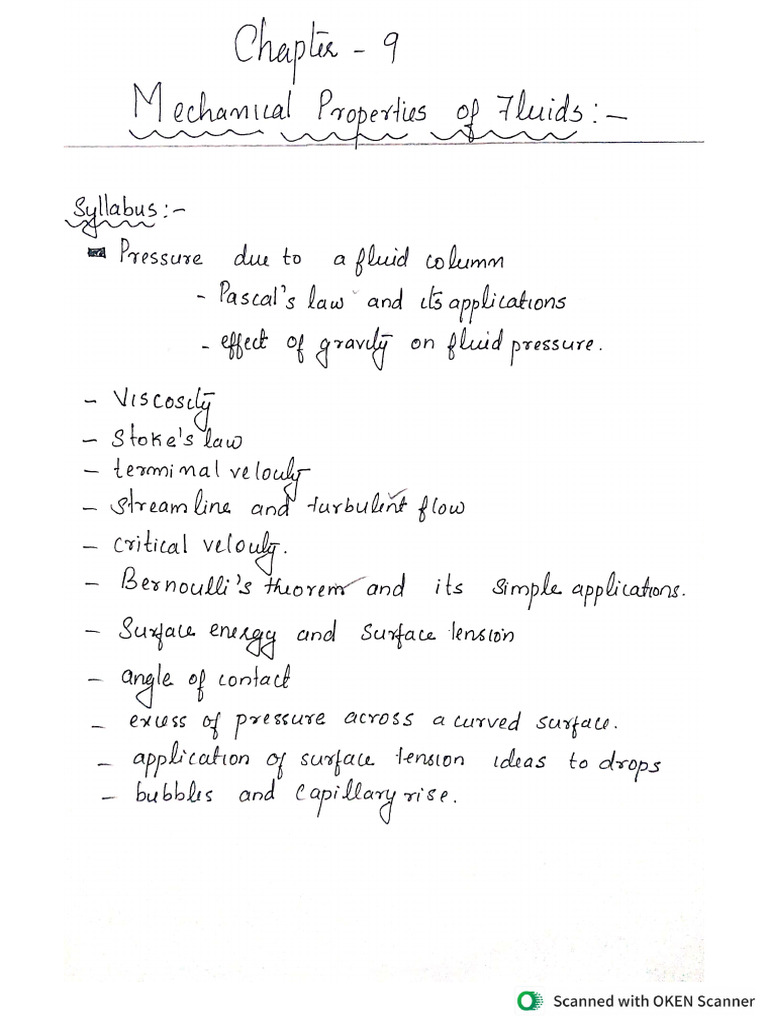 Chapter - 9
Mechanical Properties of Fluids:-
Syllabus:-
Pressure due to a fluid column
- Pascal's law and its applications
- effect of gravity on fluid pressure.
- Viscosity
- Stoke's law
- terminal velocity
- streamline and turbulent flow
- critical velocity.
- Bernoulli's theorem and its simple applications.
- Surface energy and surface tension
- angle of contact
- excess of pressure across a curved surface.
- application of surface tension ideas to drops
- bubbles and capillary rise.
Scanned with OKEN Scanner